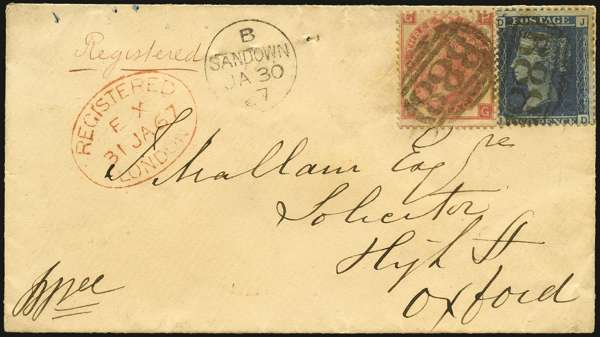 Registered
B
SANDOWN
JA 30
7
REGISTERED
E X
31 JA 67
LONDON
G
G
888
D POSTAGE J
PENCE D
888
T. Mallam Esqre
Solicitor
High St
Oxford